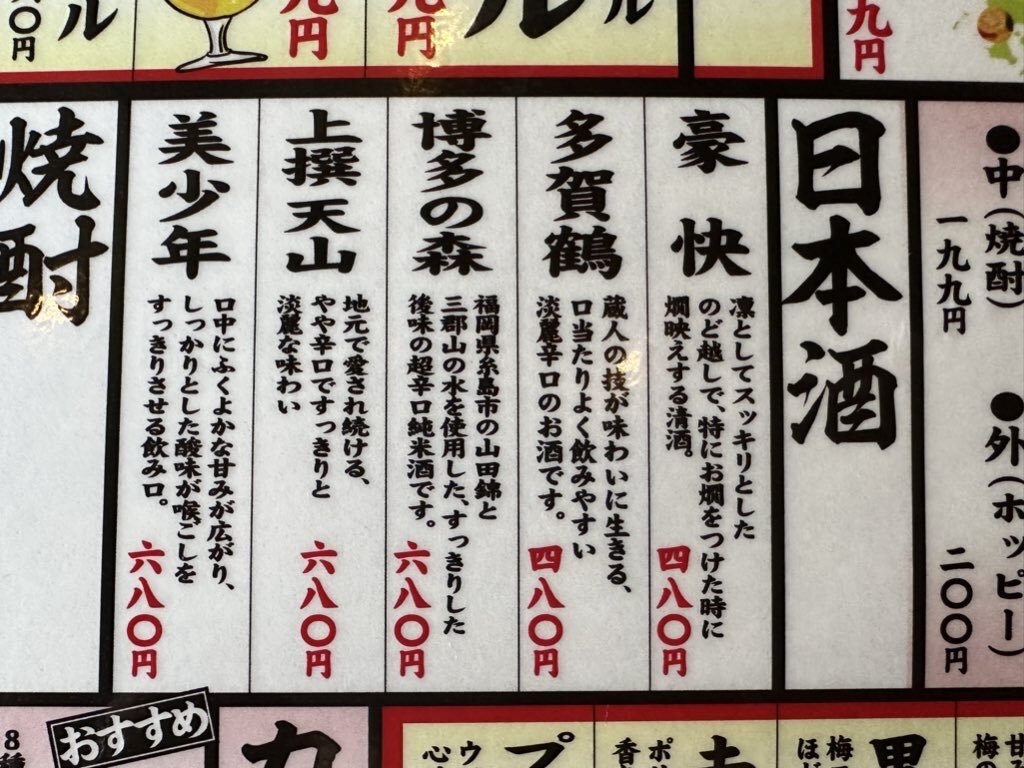 ル
円
円
ル
ル
九円
●中(焼酎)
一九九円
●外(ホッピー)
二〇〇円
日本酒
豪快
凜としてスッキリとした
のど越しで、特にお燗をつけた時に
燗映えする清酒。
四八〇円
多賀鶴
蔵人の技が味わいに生きる、
口当たりよく飲みやすい
淡麗辛口のお酒です。
四八〇円
博多の森
福岡県糸島市の山田錦と
三郡山の水を使用した、すっきりした
後味の超辛口純米酒です。
六八〇円
上撰天山
地元で愛され続ける、
やや辛口ですっきりと
淡麗な味わい
六八〇円
美少年
口中にふくよかな甘みが広がり、
しっかりとした酸味が喉ごしを
すっきりさせる飲み口。
六八〇円
焼酎
おすすめ
8種